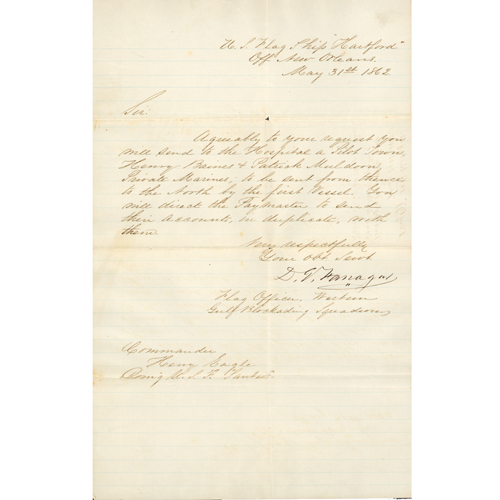 U.S. Flag Ship "Hartford"
Off New Orleans.
May 31st 1862
Sir
Agreeably to your request you
will send to the Hospital a Pilot Town,
Henry Baines & Patrick Muldoon,
Private Marines, to be sent from thence
to the North by the first Vessel. You
will direct the Paymaster to send
their accounts, in duplicate, with
them
Very respectfully
Your obt Servt
D. G. Farragut
Flag Officer, Western
Gulf Blockading Squadron
Commander
Henry Eagle
Comg U.S.